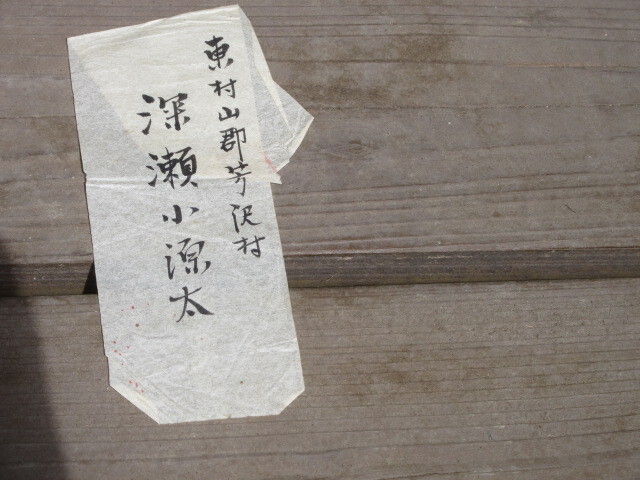 東村山郡芳沢村
深瀬小源太